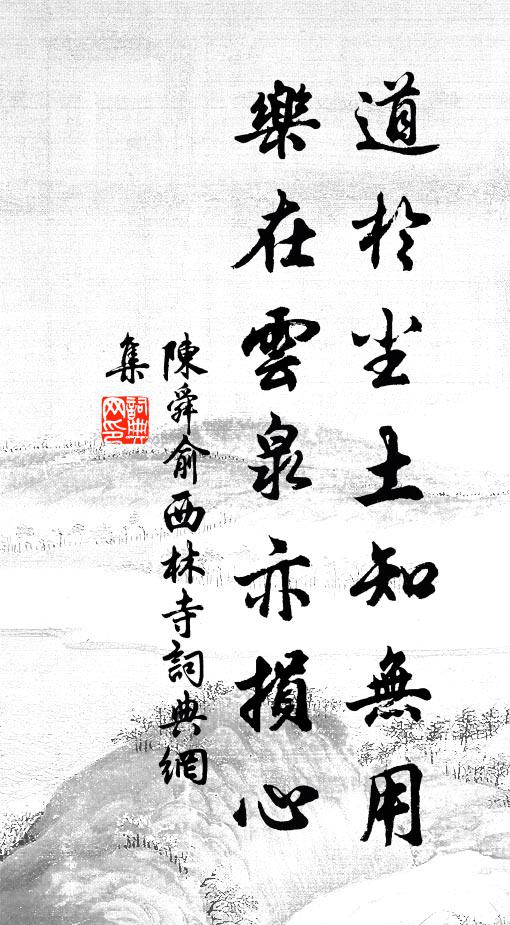 道於坐土知無用
樂在雲泉亦損心
陳舜俞西林寺詞典網
集
詞典
网印